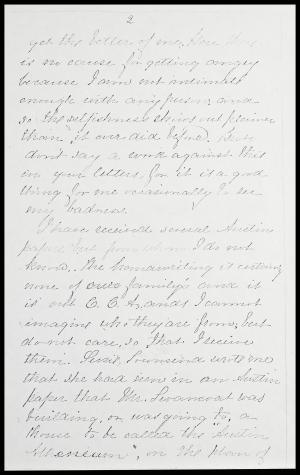 2
get the better of me. Here there
is no cause for getting angry
because I am not intimate
enough with any person and
so the selfishness shows out plainer
than it ever did before. But
don't say a word against this
in your letters for it is a good
thing for me occasionally to see
my badness.
I have received several Austin
papers but from whom I do not
know. The handwriting is certainly
none of our family's and it
is not C. C. A. and I cannot
imagine who they are from, but
do not care, so that I receive
them. Townsend wrote me
that she had seen in an Austin
paper that Mr. Swancoat was
building, or was going to, a
house to be called the "Austin
Museum", on the plan of